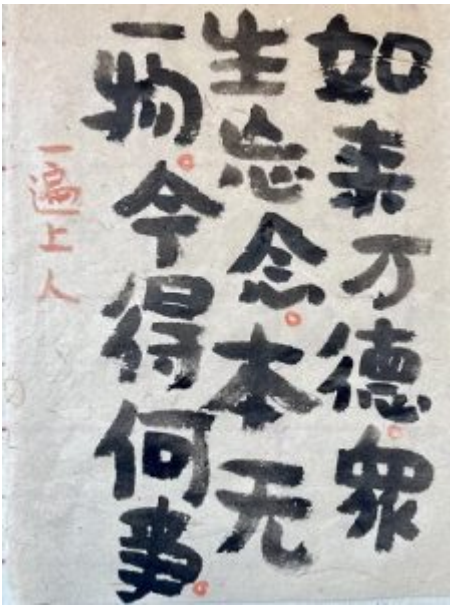 如来万德。衆
生忘念。本无
一物。今得何事。
一遍上人